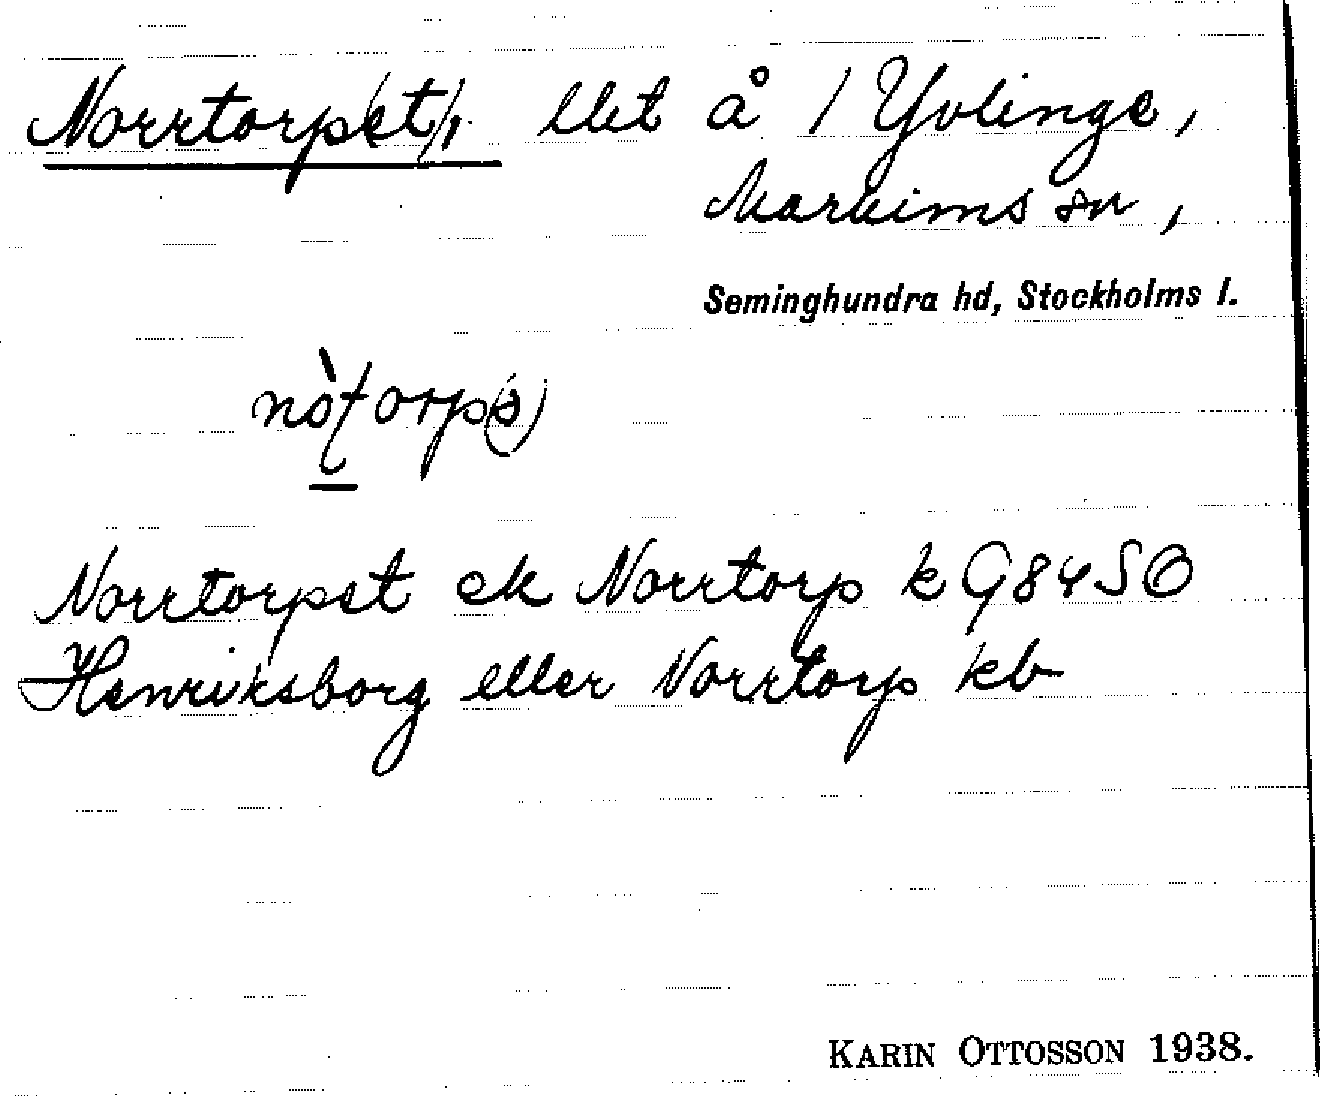 Norrtorp(et), llet å / Yvlinge,
Markims sn,
Seminghundra hd, Stockholms l.
Norrtorpet ek Norrtorp k G84SO
Henriksborg eller Norrtorp kb
KARIN OTTOSSON 1938.